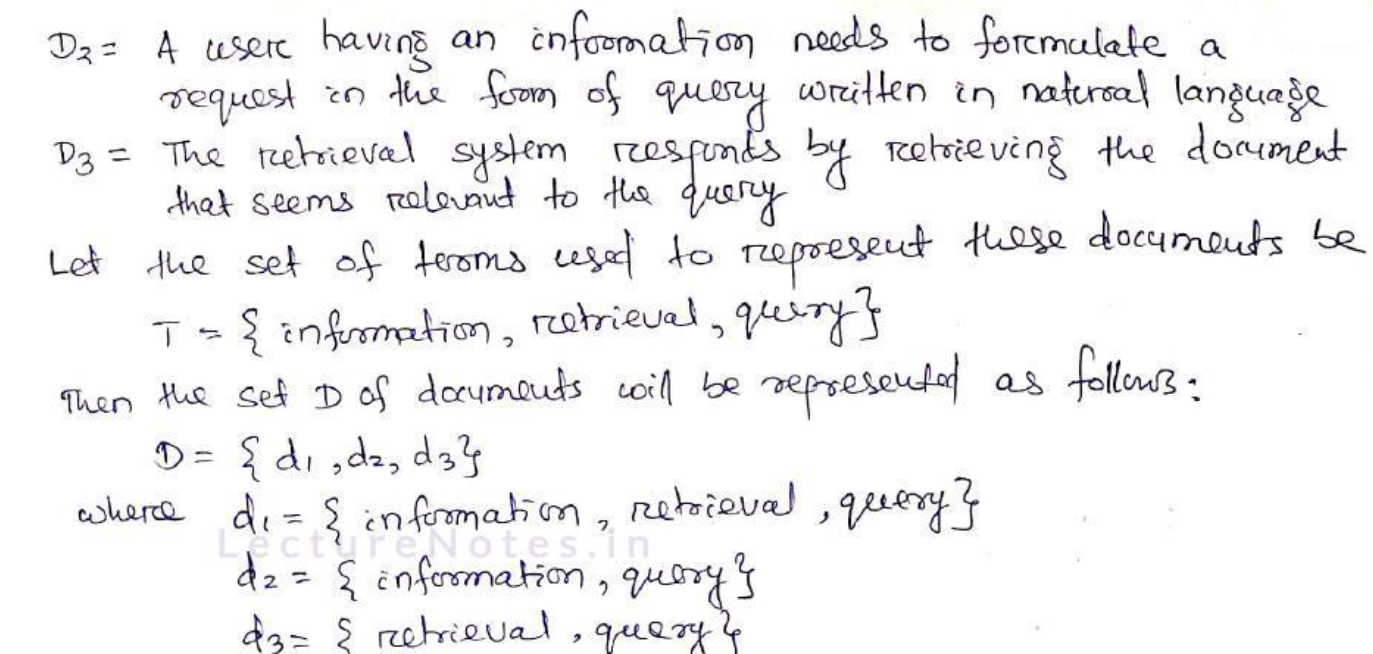 D2 = A user having an information needs to formulate a
request in the form of query written in natural language
D3 = The retrieval system responds by retrieving the document
that seems relevant to the query
Let the set of terms used to represent these documents be
T = { information, retrieval, query}
Then the set D of documents will be represented as follows:
D = { d1, d2, d3}
where d1 = { information, retrieval, query}
LectureNotes.in
d2 = { information, query}
d3 = { retrieval, query}